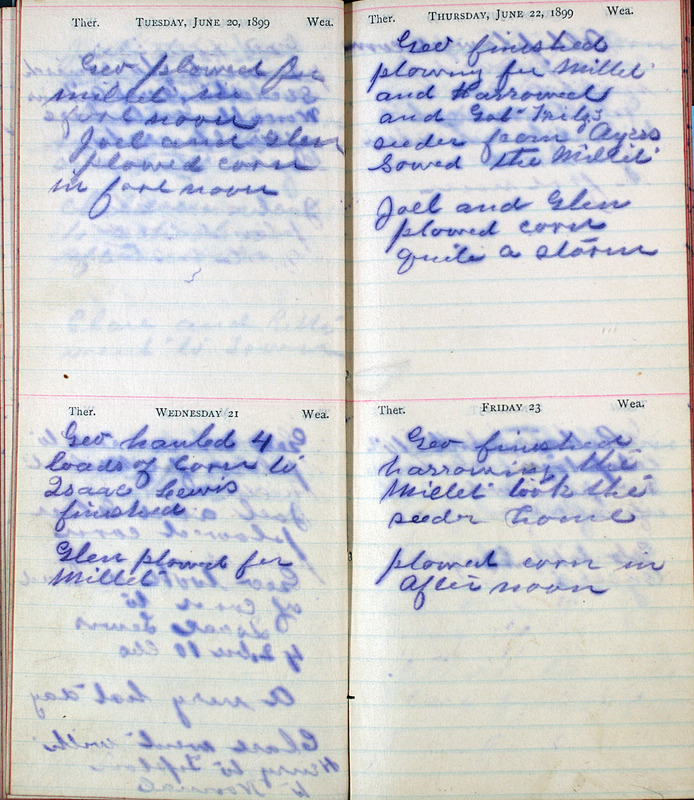 Ther. TUESDAY, JUNE 20, 1899 Wea.
Geo plowed fer
millet in
fore noon
Joel and Glen
plowed corn
in fore noon
Clare and
went to Towan
Ther. WEDNESDAY 21 Wea.
Geo hauled 4
loads of corn to
Isaac Lewis
finished
Glen plowed fer
Millet
Ther. THURSDAY, JUNE 22, 1899 Wea.
Geo finished
plowing fer Millet
and Harrowed
and Got Fritzs
seeder from Ayers
Sowed the Millet
Joel and Glen
plowed corn
quite a storm
Ther. FRIDAY 23 Wea.
Geo finished
harrowing the
Millet took the
seeder home
plowed corn in
After noon